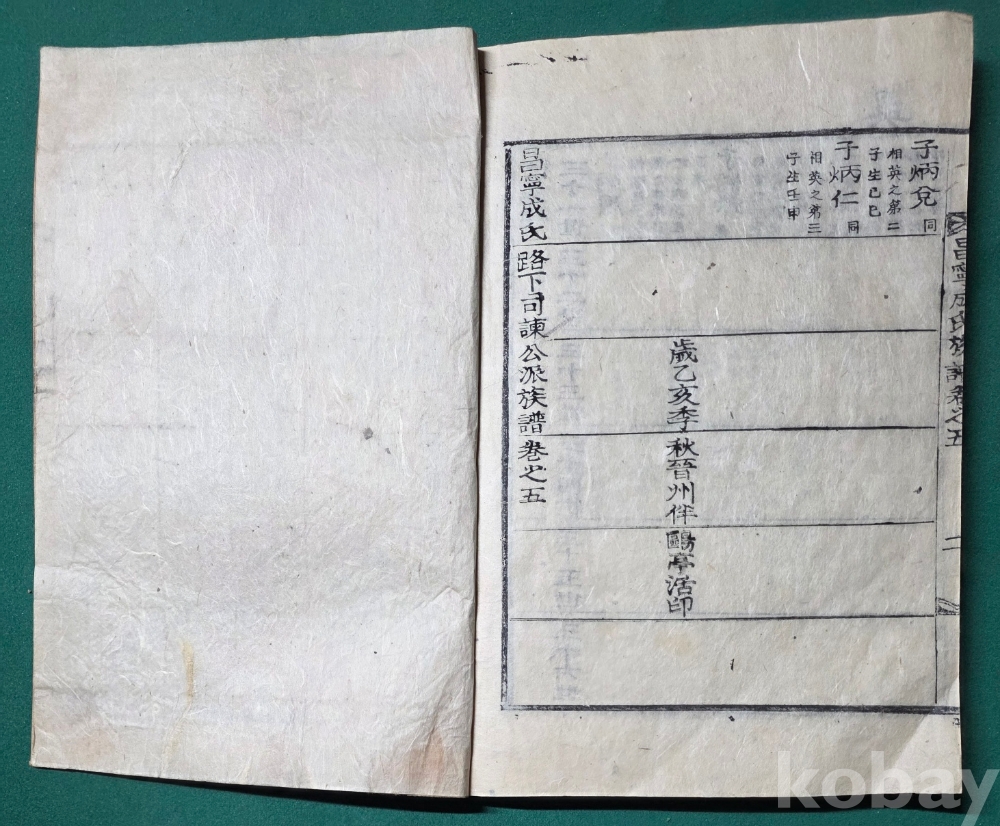 昌寧成氏族譜卷之五
二
子炳兌 同
相英之第二
子生己巳
子炳仁 同
相英之第三
子生壬申
歲乙亥季秋晉州伴鷗亭活印
昌寧成氏路下司諫公派族譜卷之五
kobay